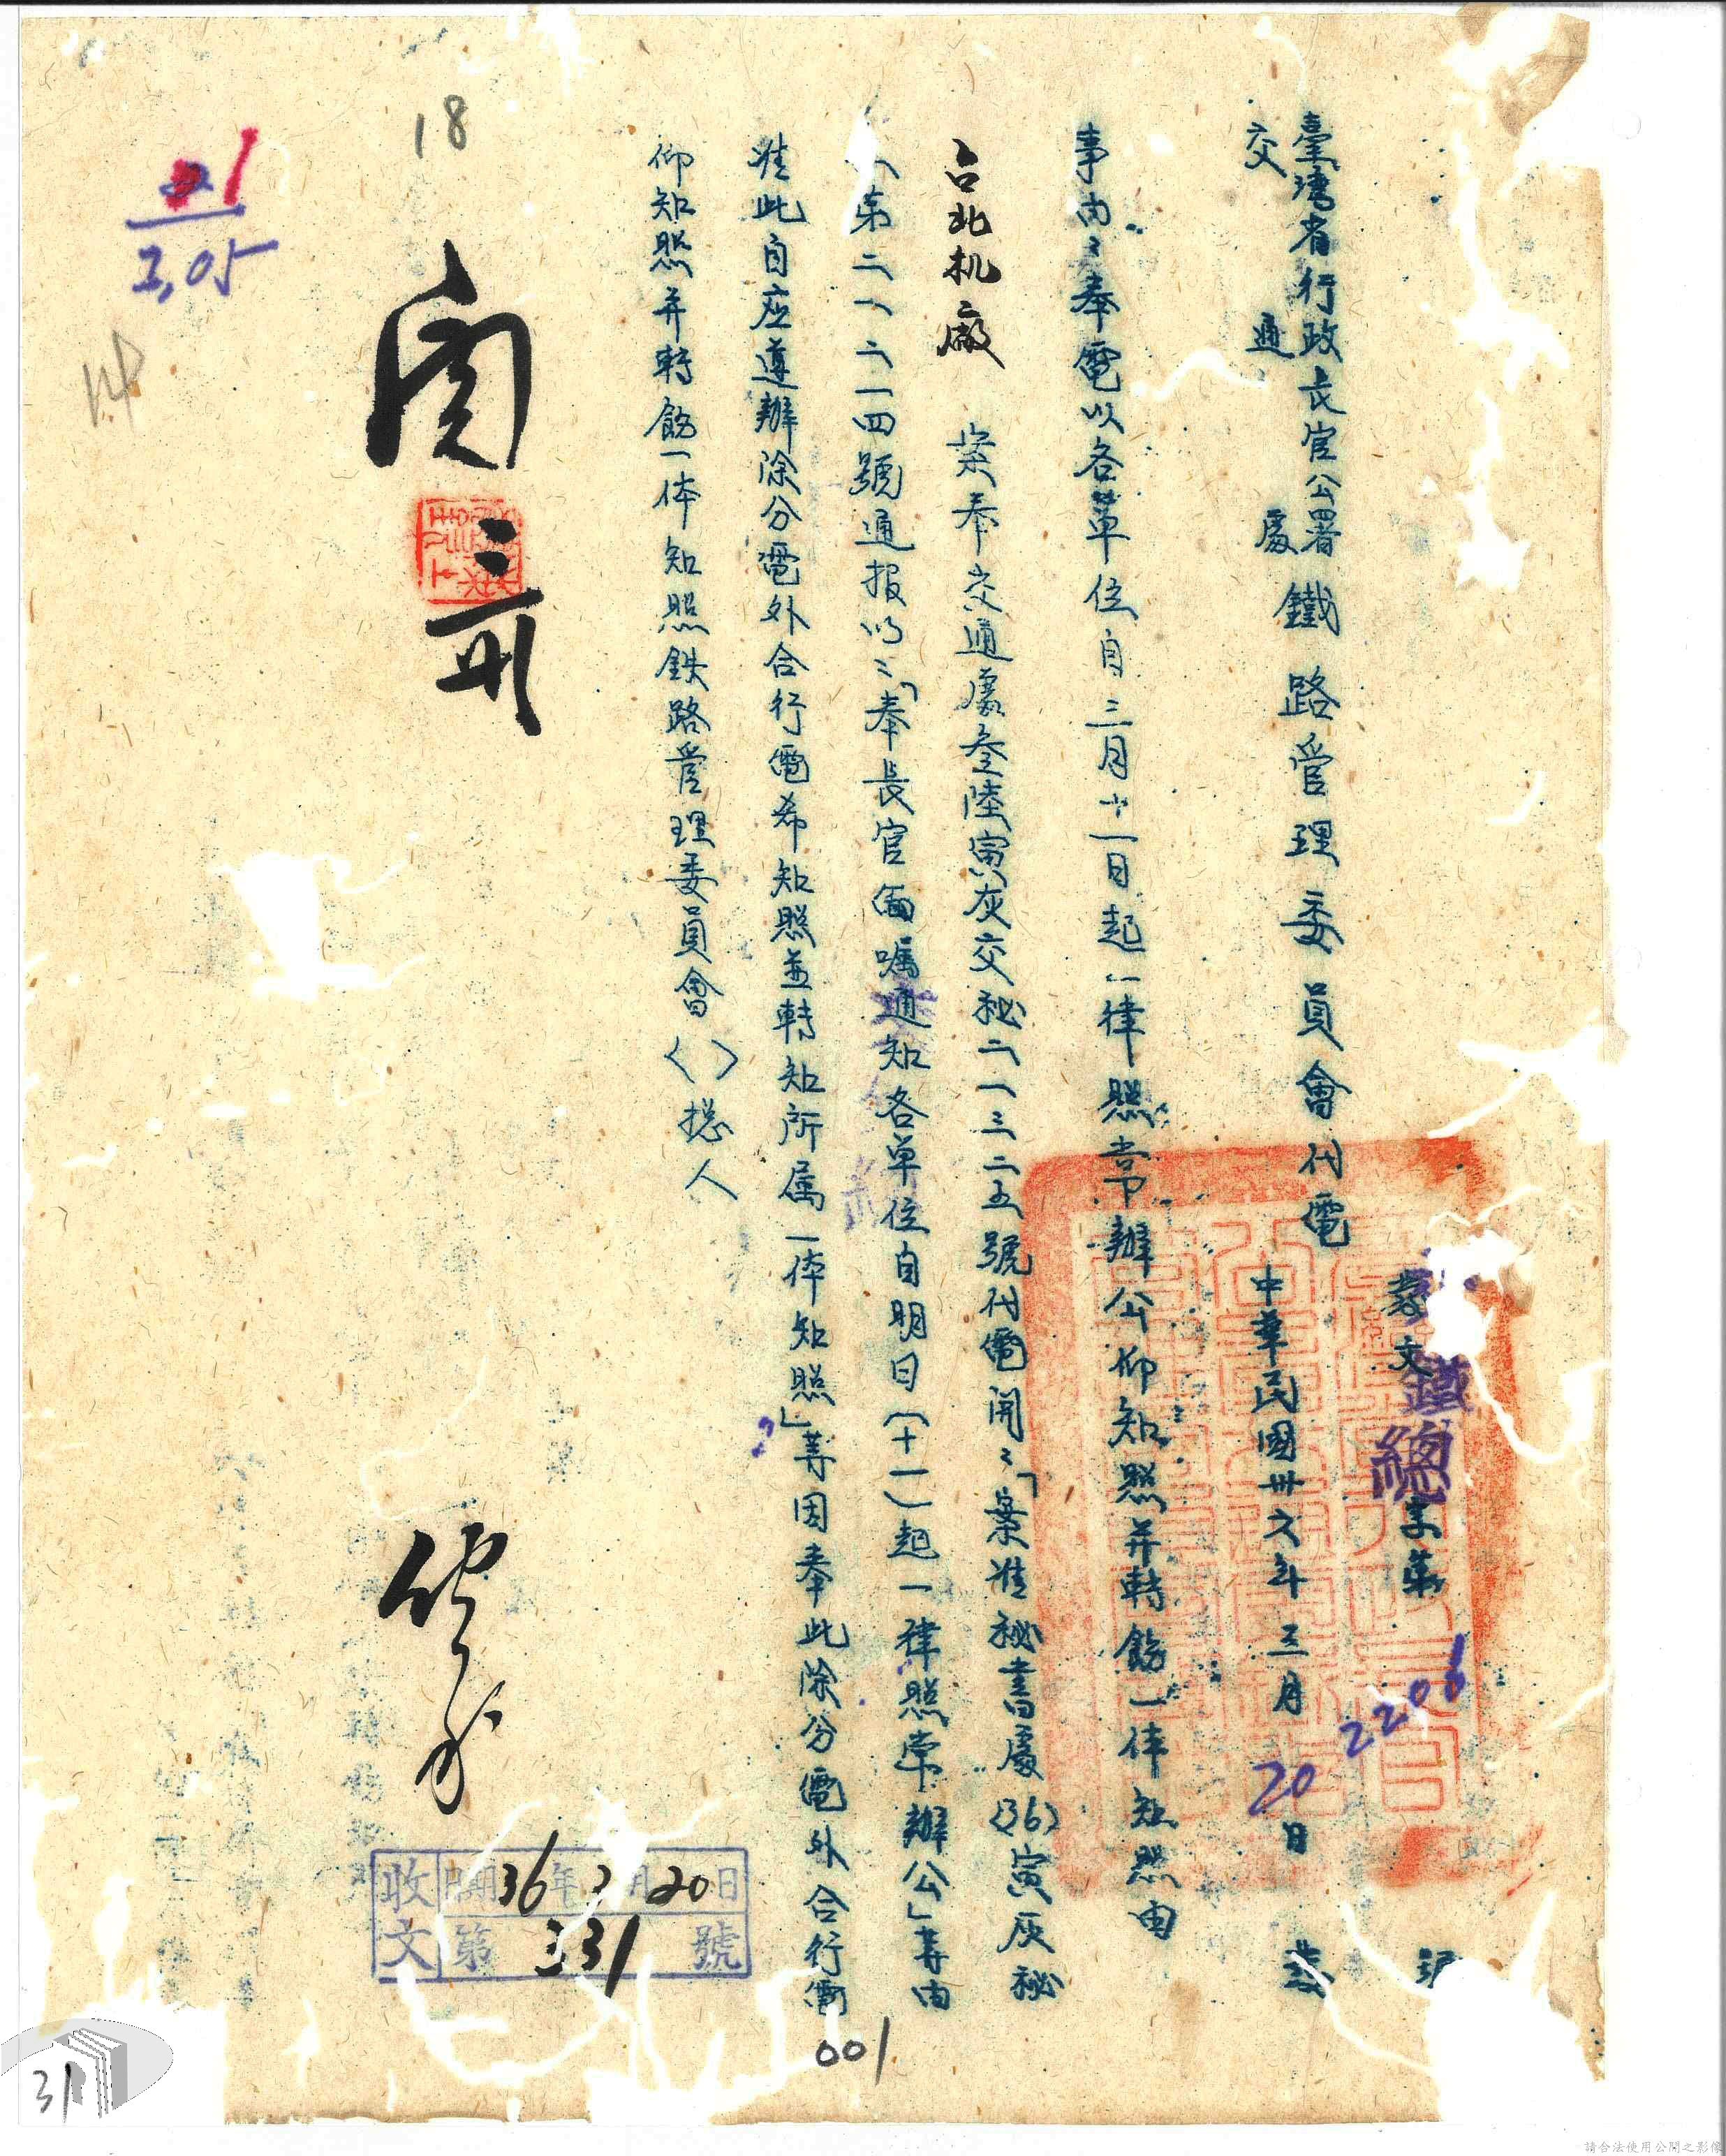 臺灣省行政長官公署
交通處
鐵路管理委員會代電
發文
鐵
總字第
2206
號
中華民國卅六年三月20日
發
事由:奉電以各單位自三月十一日起一律照常辦公仰知照并轉飭一体知照由
台北机廠
案奉交通處叁陸寅灰交秘二一三二五號代電開:「案准秘書處(36)寅灰秘
第二一二一四號通报以:「奉長官面嘱通知各单位自明日(十一)起一律照常辦公」等由
准此自应遵辦除分電外合行電希知照並轉知所属一体知照」等因奉此除分電外合行電
仰知照并轉飭一体知照鉄路管理委員會〈〉摠人
閱
三
收文
日期36年3月20日
第331號
18
1
2,05
14
001
31
請合法使用公開之影像